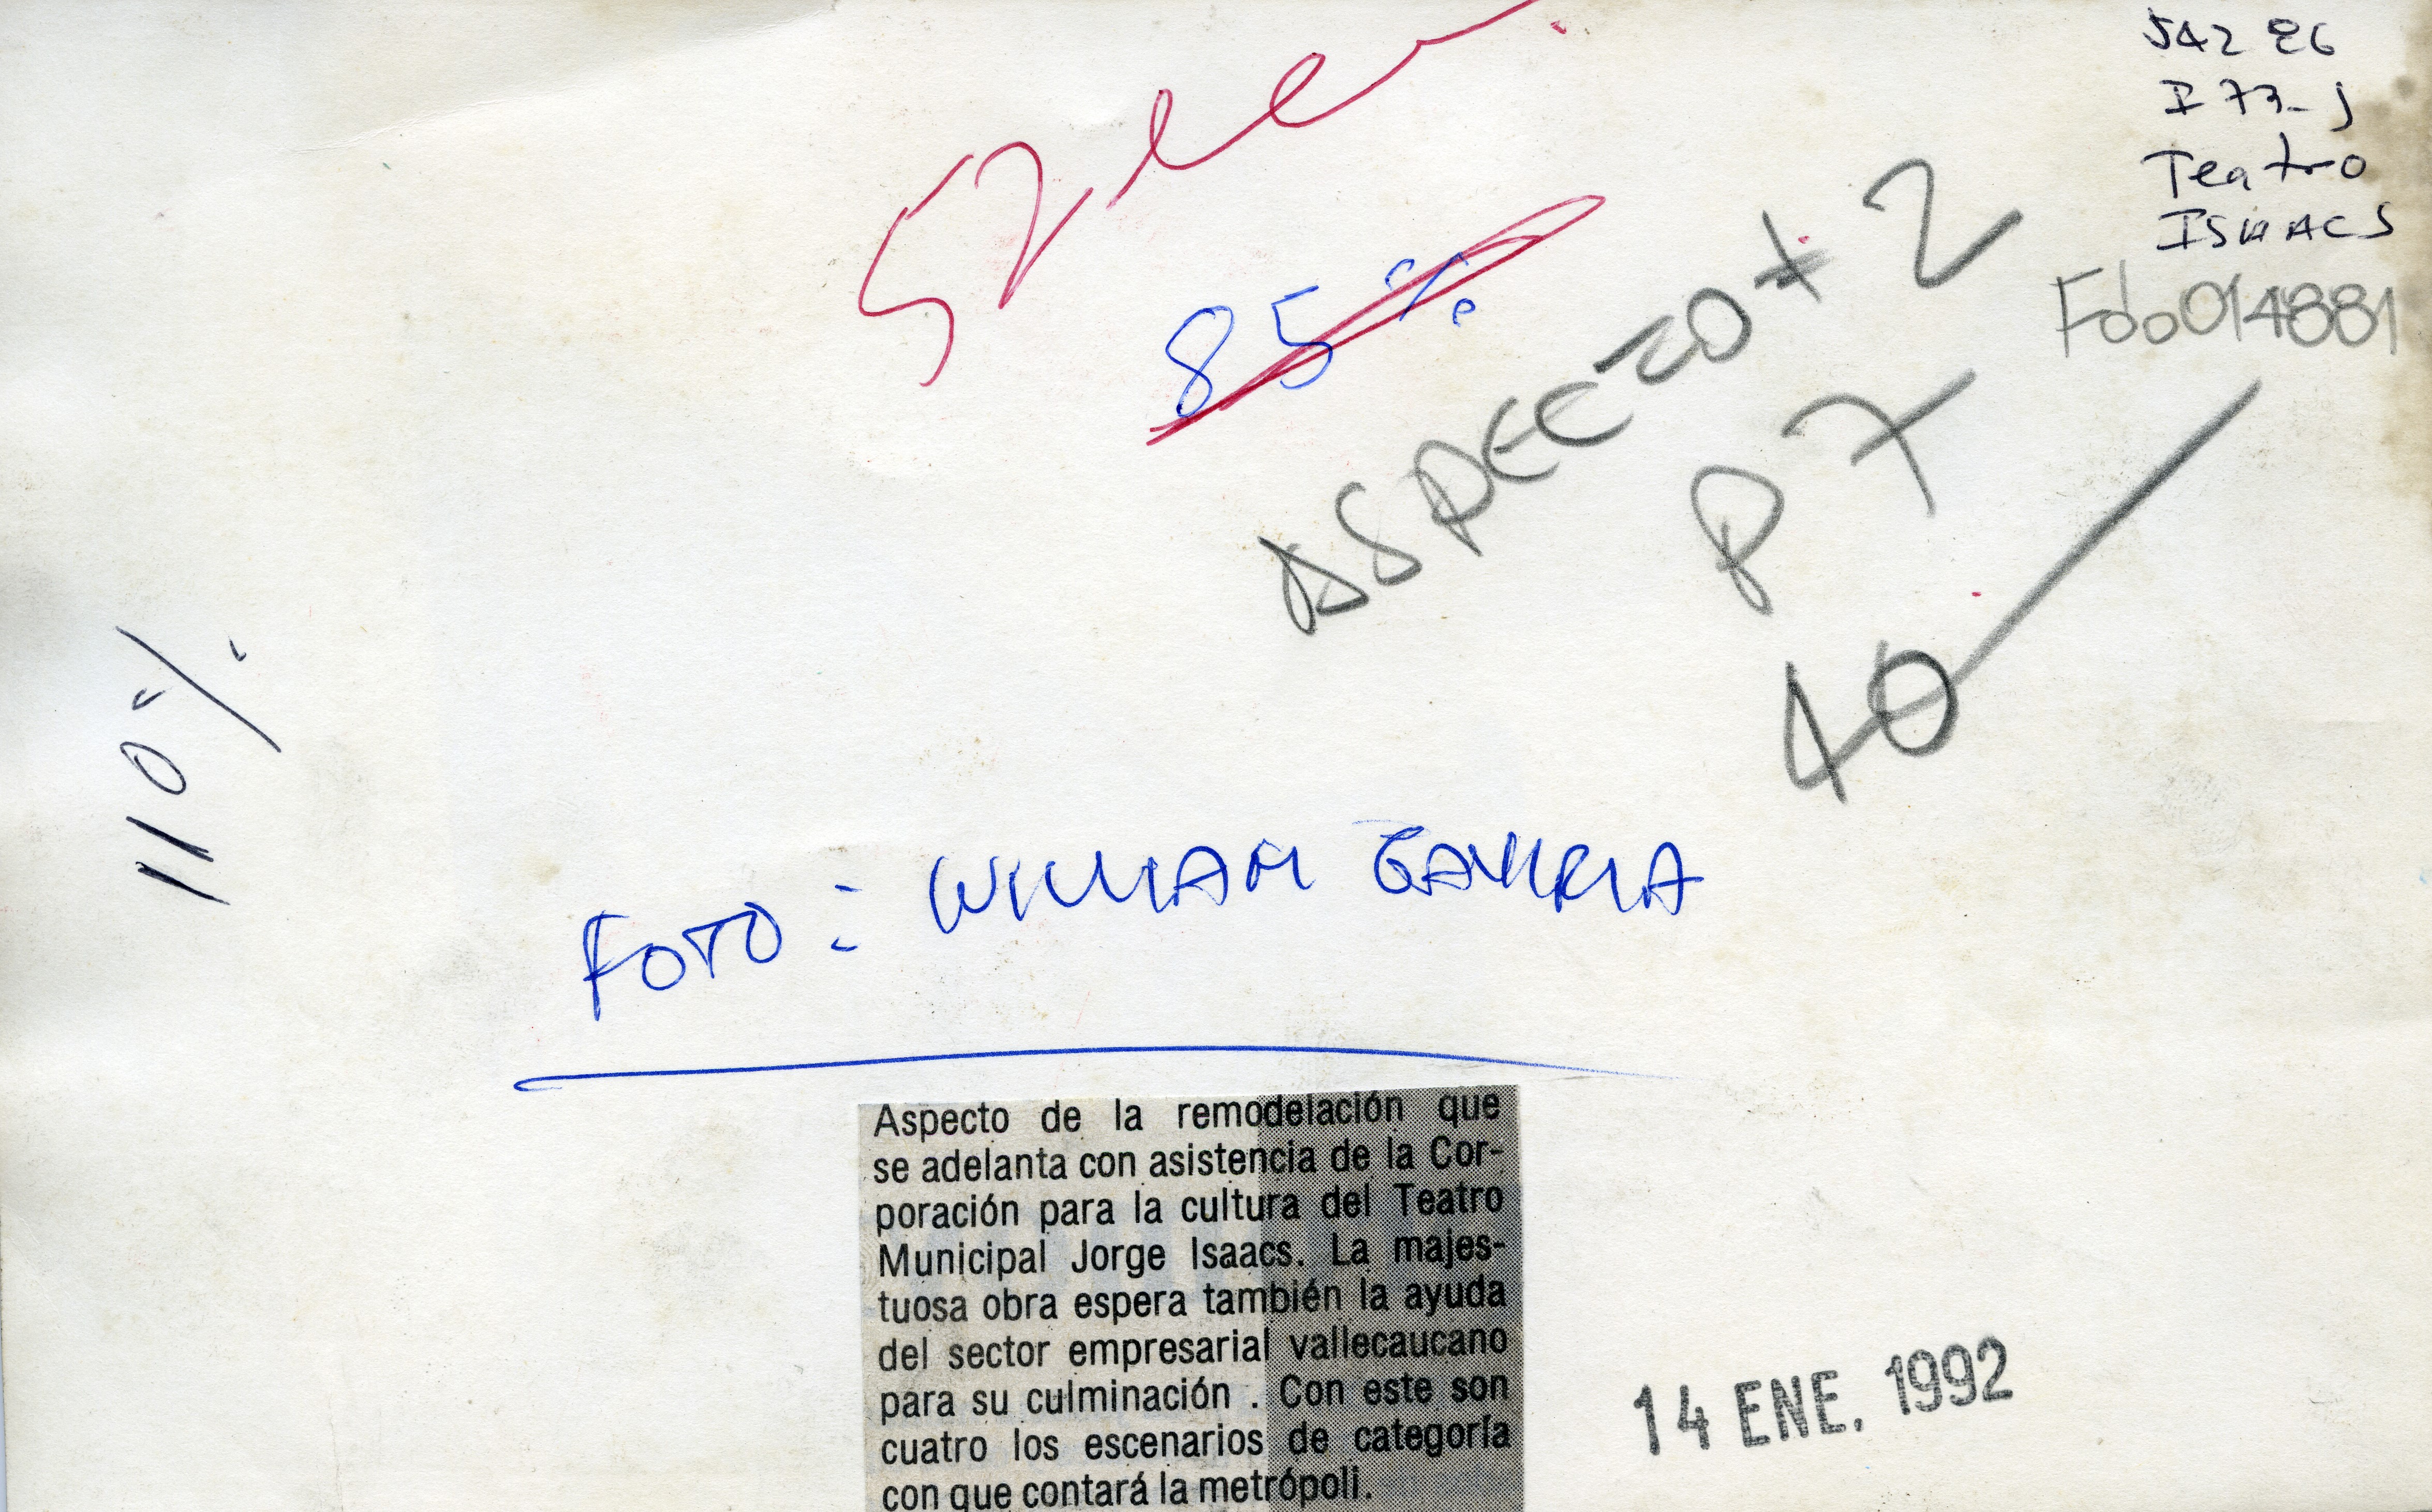 I73-J
Teatro
ISAACS
Fdo014881
85%
ASPECTO + 2
P 7
40
110%
FOTO: WILLIAM GAVIRIA
Aspecto de la remodelación que
se adelanta con asistencia de la Cor-
poración para la cultura del Teatro
Municipal Jorge Isaacs. La majes-
tuosa obra espera también la ayuda
del sector empresarial vallecaucano
para su culminación . Con este son
cuatro los escenarios de categoría
con que contará la metrópoli.
14 ENE. 1992